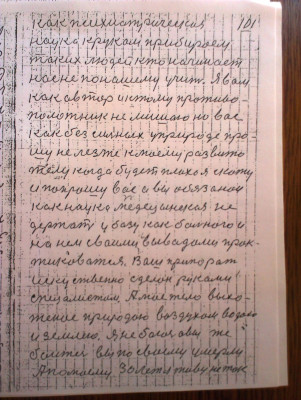 101
как психиатрическая
наука к рукам прибираем
таких людей кто начинает
нас не понашему учит. Я вам
как автор и этому противо-
положник не мишаю но вас
как без сильных у природе про-
шу не лезте к моему развито
телу когда будет плохо я скажу
и попрошу вас а вы обязаной
как наука медецинская не
держать у базу как больного и
на нем своими выводами прак-
тиковатся. Ваш припорат
искуственно сделон руками
специалистом. А мое тело выхо-
женое природою воздухом водою
и землею. Я не боюся а вы же
боитеся вы по своему умерли
А помоему Золетя живу не так